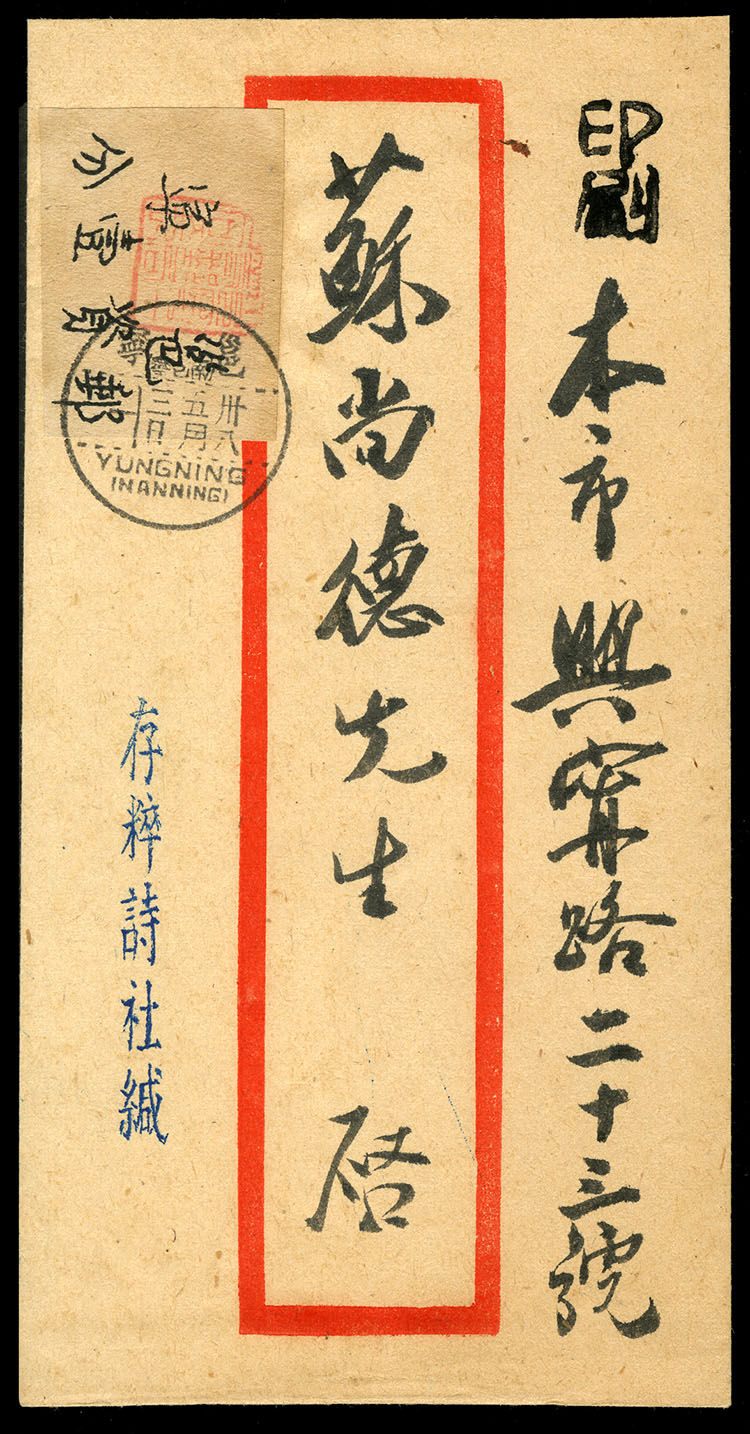 印刷
本市興甯路二十三號
蘇尚德先生 啓
郵資壹分
卅八
五月
三日
YUNGNING
(NANNING)
存粹詩社緘